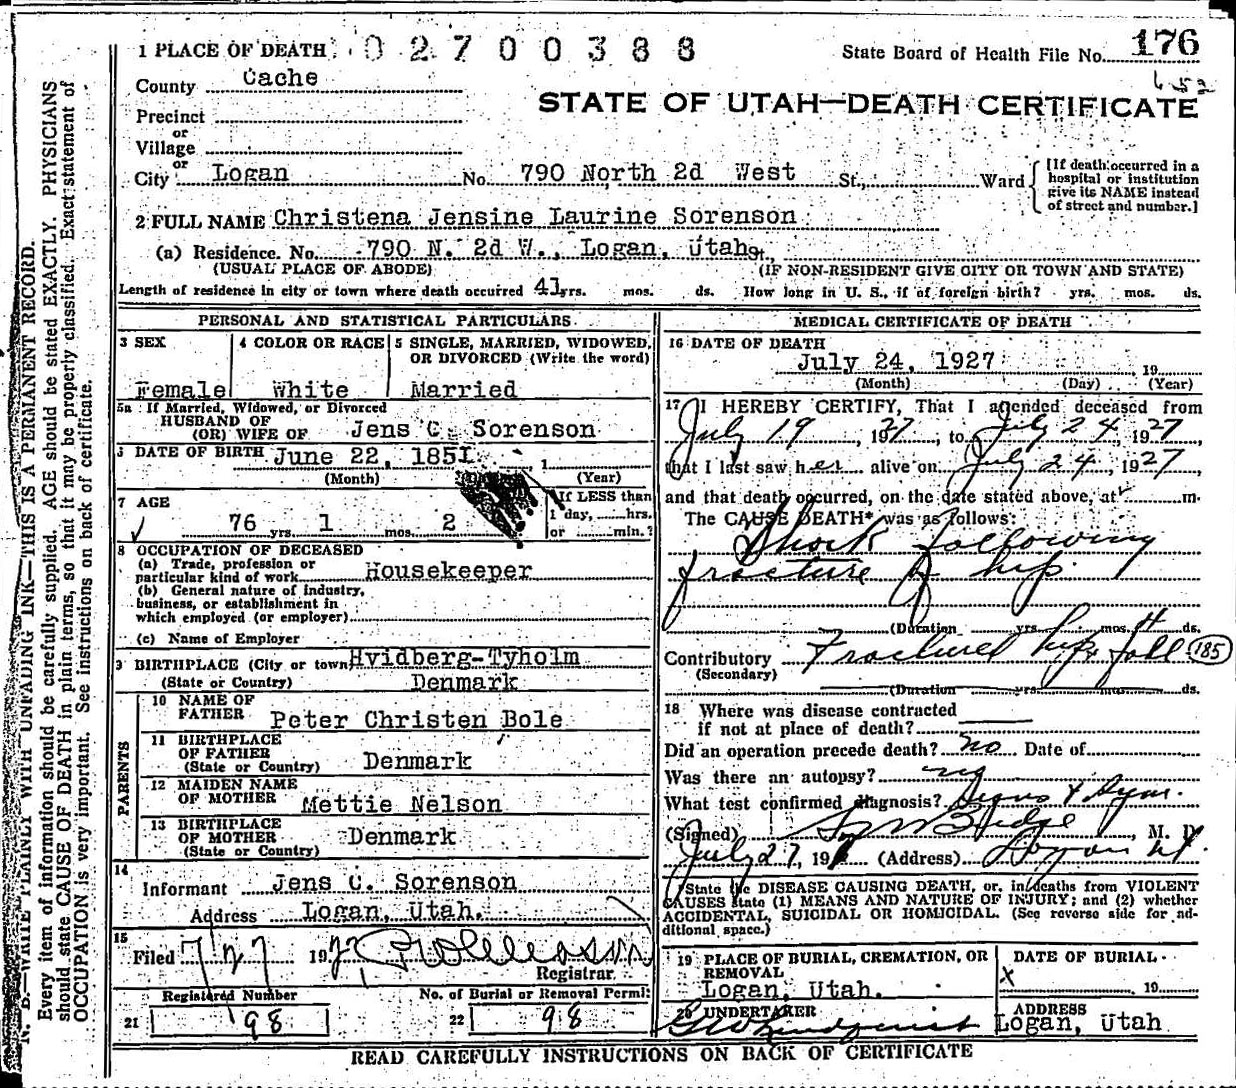 1 PLACE OF DEATH 02700388 State Board of Health File No. 176
County Cache
652
STATE OF UTAH—DEATH CERTIFICATE
Precinct
or
Village
or
City Logan No. 790 North 2d West St., Ward [If death occurred in a hospital or institution give its NAME instead of street and number.]
2 FULL NAME Christena Jensine Laurine Sorenson
(a) Residence. No. 790 N. 2d W., Logan, Utah St.,
(USUAL PLACE OF ABODE) (IF NON-RESIDENT GIVE CITY OR TOWN AND STATE)
Length of residence in city or town where death occurred 41 yrs. mos. ds. How long in U. S., if of foreign birth? yrs. mos. ds.
PERSONAL AND STATISTICAL PARTICULARS
3 SEX 4 COLOR OR RACE 5 SINGLE, MARRIED, WIDOWED,
OR DIVORCED (Write the word)
Female White Married
5a If Married, Widowed, or Divorced
HUSBAND OF
(OR) WIFE OF Jens C. Sorenson
6 DATE OF BIRTH June 22, 1851 , 1
(Month) (Year)
7 AGE If LESS than
76 yrs. 1 mos. 2 1 day, hrs.
or min.?
8 OCCUPATION OF DECEASED
(a) Trade, profession or
particular kind of work Housekeeper
(b) General nature of industry,
business, or establishment in
which employed (or employer)
(c) Name of Employer
9 BIRTHPLACE (City or town) Hvidberg-Tyholm
(State or Country) Denmark
PARENTS
10 NAME OF
FATHER Peter Christen Bole
11 BIRTHPLACE
OF FATHER
(State or Country) Denmark
12 MAIDEN NAME
OF MOTHER Mettie Nelson
13 BIRTHPLACE
OF MOTHER
(State or Country) Denmark
14
Informant Jens C. Sorenson
Address Logan, Utah.
15
Filed 7/27 1927
Registrar.
Registered Number No. of Burial or Removal Permit
21 98 22 98
MEDICAL CERTIFICATE OF DEATH
16 DATE OF DEATH
July 24, 1927 , 19
(Month) (Day) (Year)
17 I HEREBY CERTIFY, That I attended deceased from
July 19, 1927, to July 24, 1927,
that I last saw her alive on July 24, 1927
and that death occurred, on the date stated above, at m.
The CAUSE DEATH* was as follows:
Shock following
fracture of hip.
(Duration yrs. mos. 4 ds.
Contributory Fractured hip fall 185
(Secondary)
(Duration yrs. mos. ds.
18 Where was disease contracted
if not at place of death?
Did an operation precede death? no Date of
Was there an autopsy? no
What test confirmed diagnosis? Signs & Sym.
(Signed) , M. D.
July 27, 19 (Address) Logan Ut.
*State the DISEASE CAUSING DEATH, or, in deaths from VIOLENT
CAUSES state (1) MEANS AND NATURE OF INJURY; and (2) whether
ACCIDENTAL, SUICIDAL OR HOMICIDAL. (See reverse side for ad-
ditional space.)
19 PLACE OF BURIAL, CREMATION, OR DATE OF BURIAL
REMOVAL
Logan, Utah. X , 19
20 UNDERTAKER ADDRESS
Lindquist Logan, Utah
READ CAREFULLY INSTRUCTIONS ON BACK OF CERTIFICATE
N. B.—WRITE PLAINLY WITH UNFADING INK—THIS IS A PERMANENT RECORD.
Every item of information should be carefully supplied. AGE should be stated EXACTLY. PHYSICIANS
should state CAUSE OF DEATH in plain terms, so that it may be properly classified. Exact statement of
OCCUPATION is very important. See instructions on back of certificate.